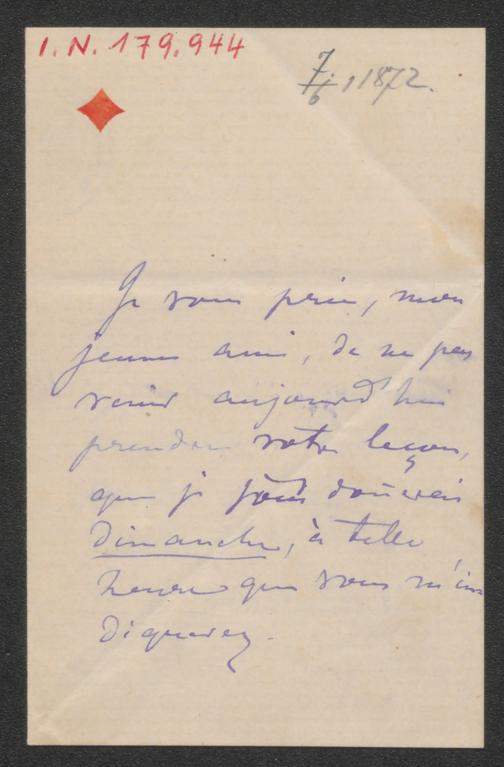 I. N. 179.944
7/6 1872.
Je vous prie, mon
jeune ami, de ne pas
venir aujourd'hui
prendre votre leçon,
que je vous donnerai
dimanche, à telle
heure que vous m'in
diquerez.